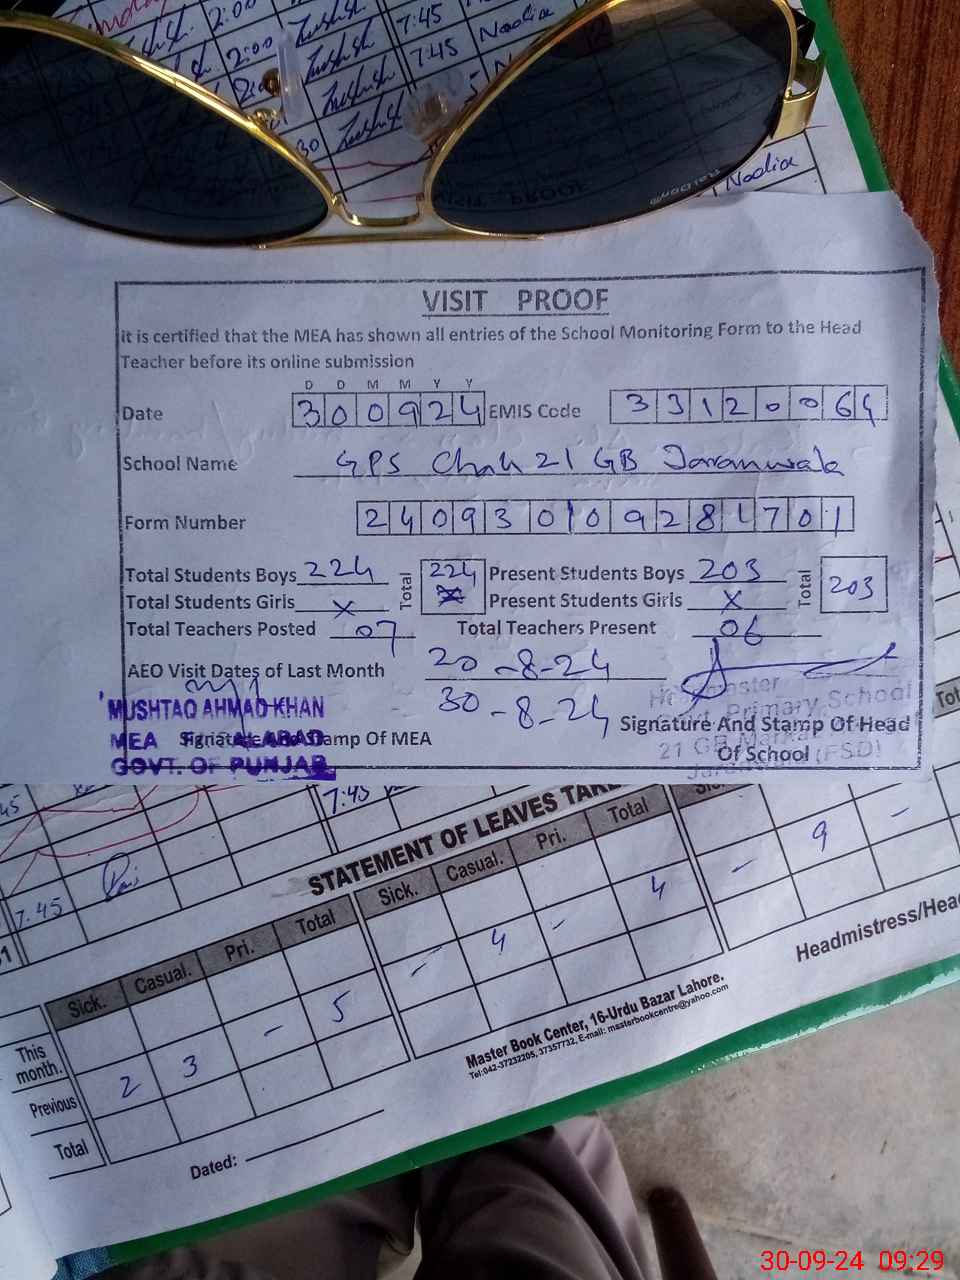 2:00 7:45 Nadia
2:00 7:45 Nadia
7:45
30
Nadia
VISIT PROOF
it is certified that the MEA has shown all entries of the School Monitoring Form to the Head
Teacher before its online submission
D D M M Y Y
Date 300924 EMIS Code 33120064
School Name GPS Chak 21 GB Jaranwala
Form Number 240930109281701
Total Students Boys 224 Total 224 Present Students Boys 203 Total 203
Total Students Girls X Present Students Girls X
Total Teachers Posted 07 Total Teachers Present 06
AEO Visit Dates of Last Month 20-8-24
30-8-24
MUSHTAQ AHMAD KHAN
MEA FAISALABAD
GOVT. OF PUNJAB
Signature And Stamp Of MEA
Signature And Stamp Of Head
Of School
Primary School
21 GB
(FSD)
7:45
STATEMENT OF LEAVES
7.45
Sick. Casual. Pri. Total Sick. Casual. Pri. Total
This month.
- 4 - 4 - 9 -
Previous 2 3 - 5
Total
Headmistress/Hea
Master Book Center, 16-Urdu Bazar Lahore.
Tel:042-37232205, 37357732, E-mail: masterbookcentre@yahoo.com
Dated:
30-09-24 09:29